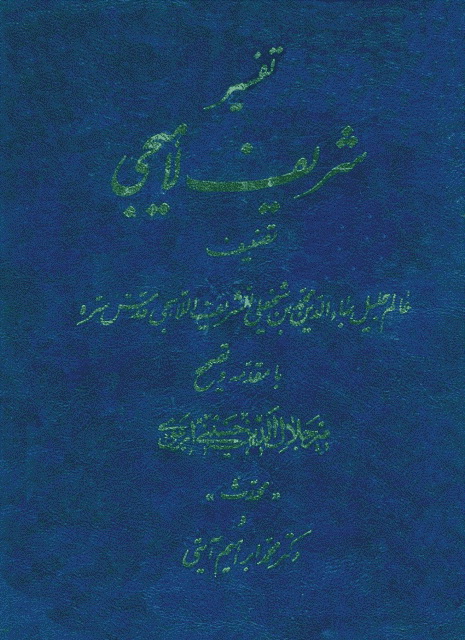 تفسیر
شریف لاهیجی
تصنیف
عالم جلیل بهاء الدین محمد بن شیخعلی الشریف اللاهیجی قدس سره
با مقدمه و تصحیح
میر جلال الدین حسینی ارموی
«محدث»
و
دکتر محمد ابراهیم آیتی